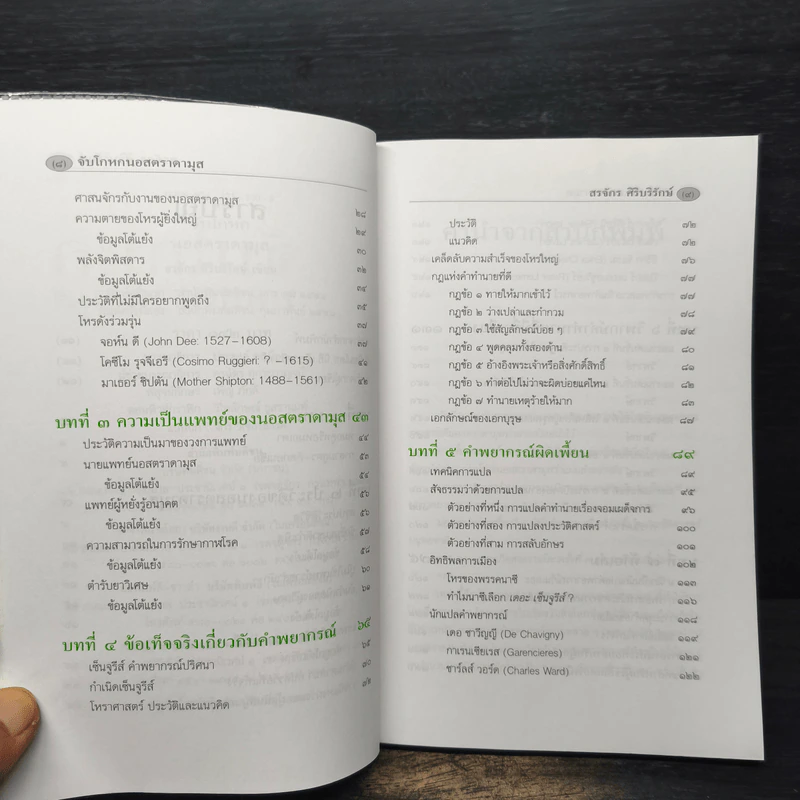 (๘) จับโกหกนอสตราดามุส
ศาสนจักรกับงานของนอสตราดามุส ๒๘
ความตายของโหรผู้ยิ่งใหญ่ ๒๙
ข้อมูลโต้แย้ง ๓๐
พลังจิตพิสดาร ๓๒
ข้อมูลโต้แย้ง ๓๔
ประวัติที่ไม่มีใครอยากพูดถึง ๓๕
โหรดังร่วมรุ่น ๓๗
จอห์น ดี (John Dee: 1527-1608) ๓๗
โคซิโม รุจจีเอรี (Cosimo Ruggieri: ? -1615) ๔๑
มาเธอร์ ชิปตัน (Mother Shipton: 1488-1561) ๔๒
บทที่ ๓ ความเป็นแพทย์ของนอสตราดามุส ๔๓
ประวัติความเป็นมาของวงการแพทย์ ๔๔
นายแพทย์นอสตราดามุส ๕๔
ข้อมูลโต้แย้ง ๕๔
แพทย์ผู้หยั่งรู้อนาคต ๕๖
ข้อมูลโต้แย้ง ๕๖
ความสามารถในการรักษากาฬโรค ๕๗
ข้อมูลโต้แย้ง ๕๘
ตำรับยาวิเศษ ๖๐
ข้อมูลโต้แย้ง ๖๑
บทที่ ๔ ข้อเท็จจริงเกี่ยวกับคำพยากรณ์ ๖๕
เซ็นจูรีส์ คำพยากรณ์ปริศนา ๖๕
กำเนิดเซ็นจูรีส์ ๗๐
โหราศาสตร์ ประวัติและแนวคิด ๗๒
สรจักร ศิริบริรักษ์ (๙)
ประวัติ ๗๒
แนวคิด ๗๒
เคล็ดลับความสำเร็จของโหรใหญ่ ๗๖
กฎแห่งคำทำนายที่ดี ๗๗
กฎข้อ ๑ ทายให้มากเข้าไว้ ๗๗
กฎข้อ ๒ ว่างเปล่าและกำกวม ๗๘
กฎข้อ ๓ ใช้สัญลักษณ์บ่อย ๆ ๗๙
กฎข้อ ๔ พูดคลุมทั้งสองด้าน ๘๐
กฎข้อ ๕ อ้างอิงพระเจ้าหรือสิ่งศักดิ์สิทธิ์ ๘๑
กฎข้อ ๖ ทำต่อไปไม่ว่าจะผิดบ่อยแค่ไหน ๘๒
กฎข้อ ๗ ทำนายเหตุร้ายให้มาก ๘๓
เอกลักษณ์ของเอกบุรุษ ๘๗
บทที่ ๕ คำพยากรณ์ผิดเพี้ยน ๘๙
เทคนิคการแปล ๘๙
สัจธรรมว่าด้วยการแปล ๙๕
ตัวอย่างที่หนึ่ง การแปลคำทำนายเรื่องจอมเผด็จการ ๙๖
ตัวอย่างที่สอง การแปลงประวัติศาสตร์ ๑๐๐
ตัวอย่างที่สาม การสลับอักษร ๑๐๑
อิทธิพลการเมือง ๑๐๒
โหรของพรรคนาซี ๑๑๓
ทำไมนาซีเลือก เดอะ เซ็นจูรีส์ ? ๑๑๖
นักแปลคำพยากรณ์ ๑๑๘
เดอ ชาวีญญี (De Chavigny) ๑๑๙
กาเรนเซียเรส (Garencieres) ๑๒๑
ชาร์ลส์ วอร์ด (Charles Ward) ๑๒๒